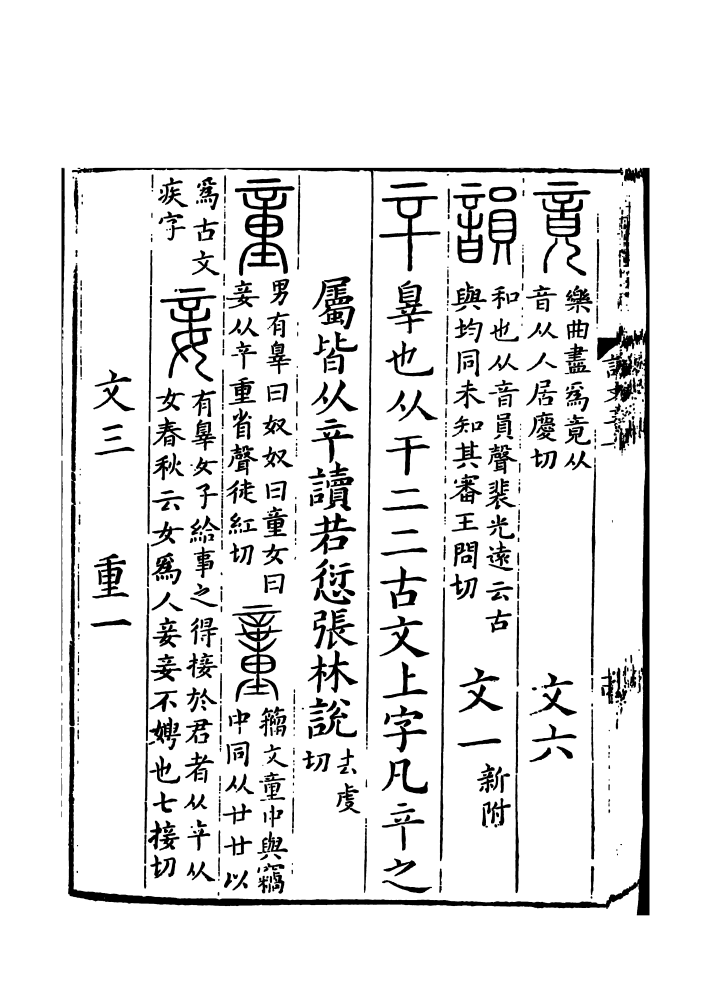 竟 樂曲盡爲竟从
音从人居慶切
文六
韻 和也从音員聲裴光遠云古
與均同未知其審王問切
文一
新附
䇂 辠也从干二二古文上字凡䇂之
屬皆从䇂讀若愆張林說
去虔
切
童 男有辠曰奴奴曰童女曰
妾从䇂重省聲徒紅切
𥫍 籒文童中與竊
中同从廿廿以
爲古文
疾字
妾 有辠女子給事之得接於君者从䇂从
女春秋云女爲人妾妾不娉也七接切
文三 重一